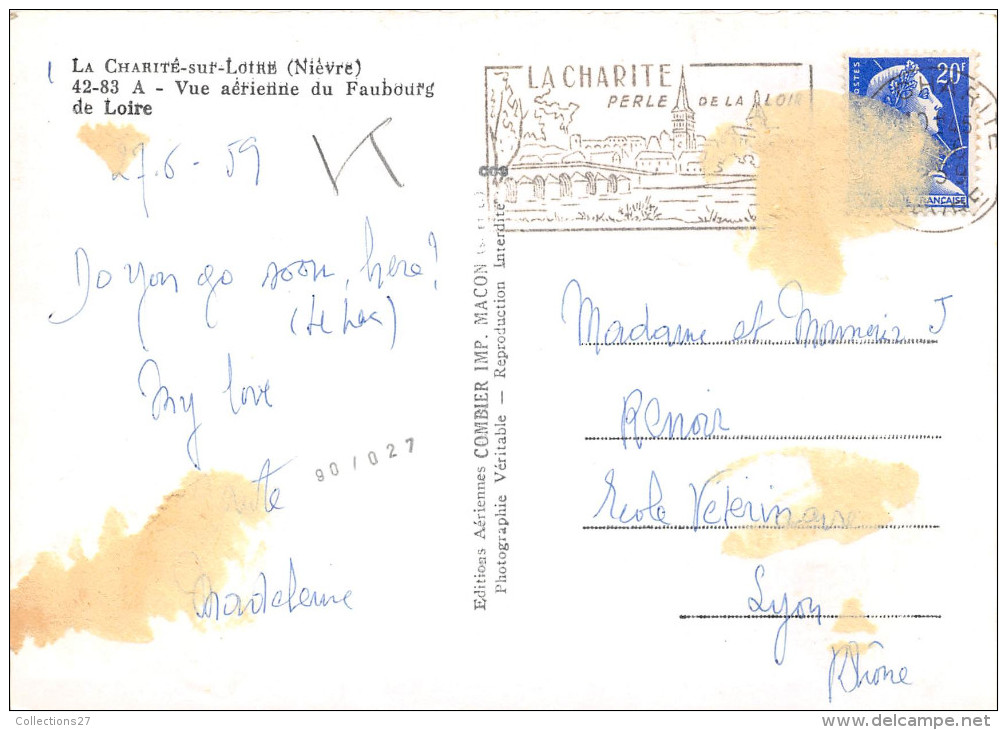 LA CHARITÉ-sur-LOIRE (Nièvre)
42-83 A - Vue aérienne du Faubourg
de Loire
27.6-59
Do you go soon, here?
My love
Madeleine
90/027
Editions Aériennes COMBIER IMP. MACON
Photographie Véritable — Reproduction Interdite
LA CHARITE
PERLE DE LA LOIR
POSTES
20F
FRANÇAISE
Madame et Monsieur J
Renoir
Ecole Vétérinaire
Lyon
Rhône
Collections27
delcampe.net